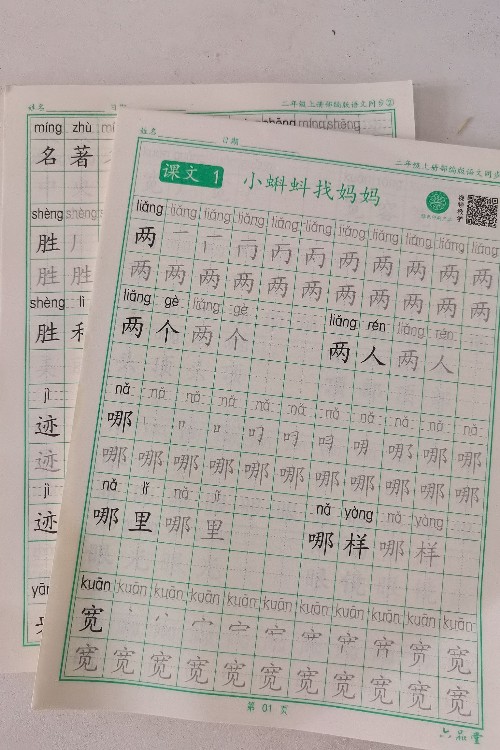 姓名 日期 二年级上册部编版语文同步②
míng zhù
名 著
shèng shèng
胜
胜 胜
shèng lì
胜
jì
迹
迹
jì
迹
姓名 日期 二年级上册部编版语文同步
课文 1 小蝌蚪找妈妈
liǎng liǎng liǎng liǎng liǎng liǎng liǎng liǎng liǎng liǎng
两
两 两 两 两 两 两 两 两 两 两
liǎng gè liǎng gè liǎng rén liǎng rén
两 个 两 个 两 人 两 人
nǎ nǎ nǎ nǎ nǎ nǎ nǎ nǎ nǎ nǎ
哪
哪 哪 哪 哪 哪 哪 哪 哪 哪 哪
nǎ lǐ nǎ lǐ nǎ yàng nǎ yàng
哪 里 哪 里 哪 样 哪 样
kuān kuān kuān kuān kuān kuān kuān kuān kuān kuān kuān
宽
宽 宽 宽 宽 宽 宽 宽 宽 宽 宽 宽
第 01 页
六品堂